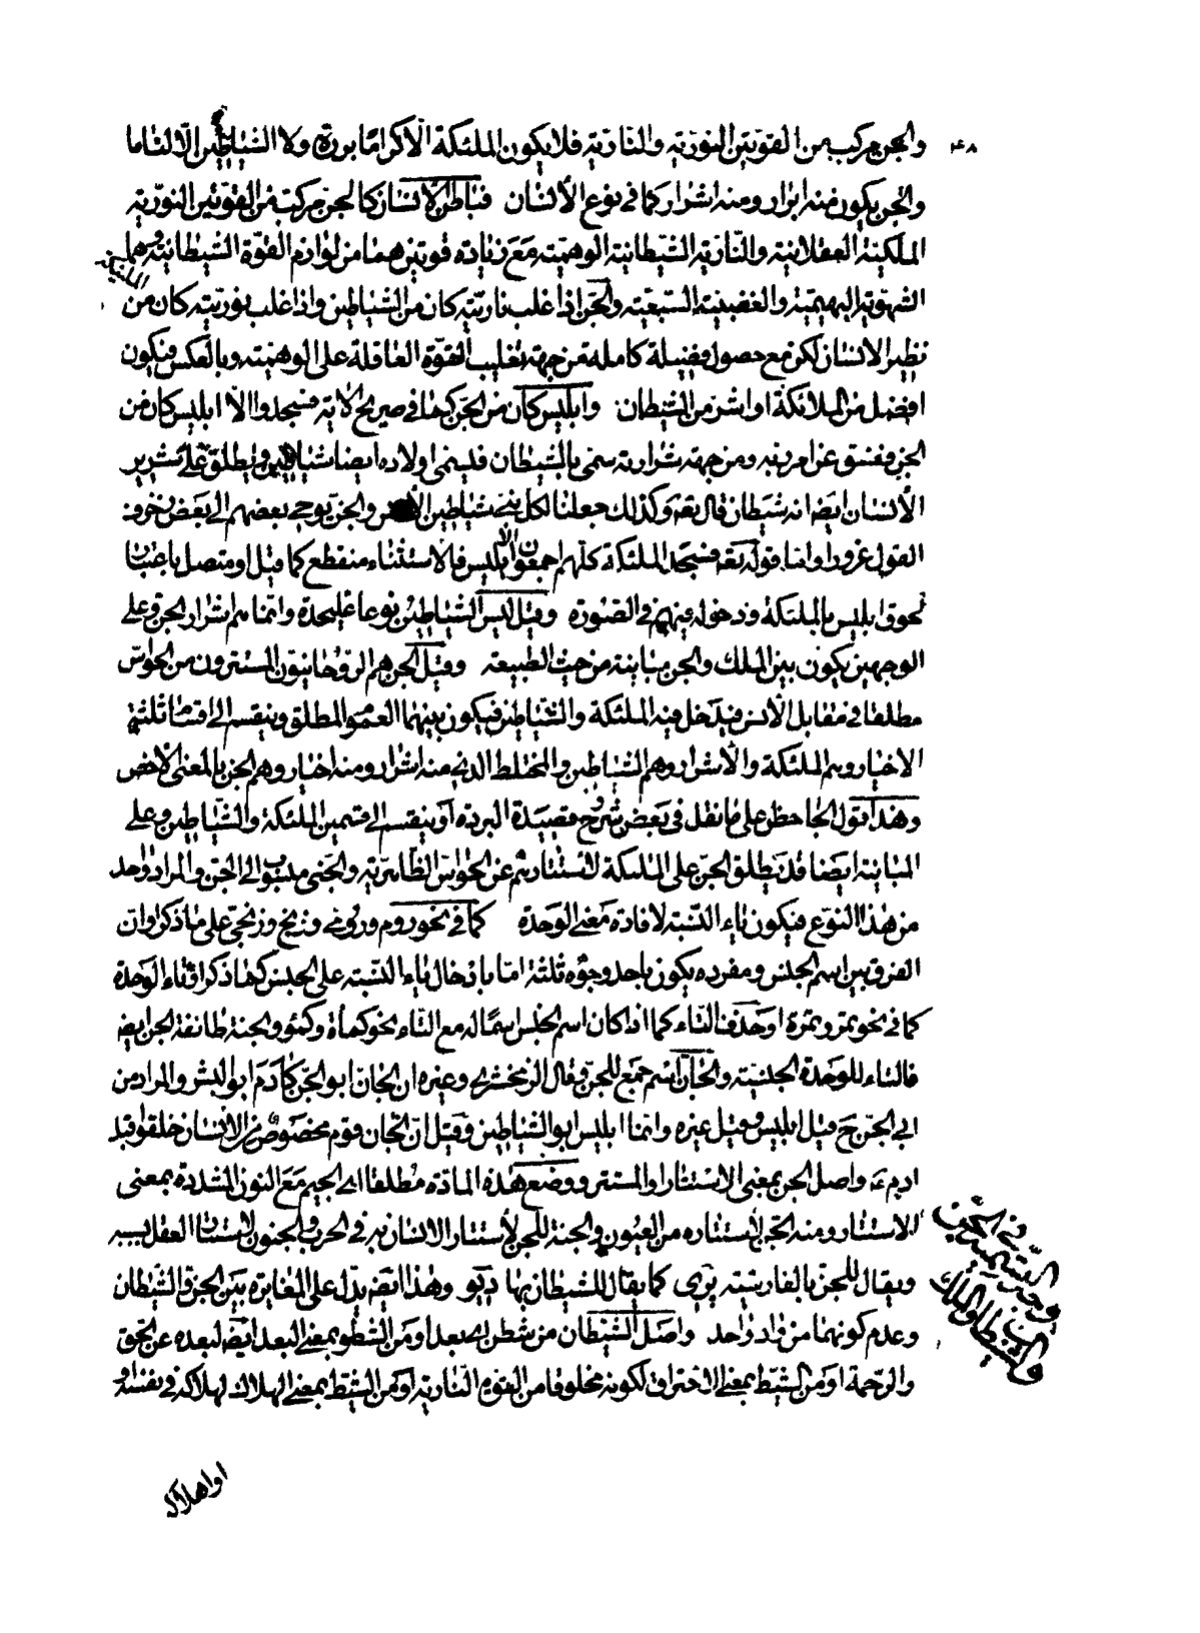 ۴۸
والجن مركب من القوتين النورية والنارية فلا يكون الملئكة الا كراما بررة ولا الشياطين الا لئاما
والجن يكون منه ابرار ومنه اشرار كما في نوع الانسان فباطن الانسان كالجن مركب من القوتين النورية
الملكية العقلانية والنارية الشيطانية الوهمية مع زيادة قوتين هما من لوازم القوة الشيطانية وهما
الشهوية البهيمية والغضبية السبعية والجن اذا غلب ناريته كان من الشياطين واذا غلب نوريته كان من
نظير الانسان لكن مع حصول فضيلة كاملة من جهة تغليب القوة العاقلة على الوهمية وبالعكس فيكون
افضل من الملائكة او اشر من الشيطان وابليس كان من الجن كما في صريح الاية فسجدوا الا ابليس كان من
الجن ففسق عن امر ربه ومن جهة شرارته سمى بالشيطان فليسمى اولاده ايضا شياطين ويطلق على شرير
الانسان ايضا انه شيطان قال تعه وكذلك جعلنا لكل نبي شياطين الانس والجن يوحي بعضهم الى بعض زخرف
القول غرورا واما قوله تعه فسجد الملئكة كلهم اجمعون الا ابليس فالاستثناء منقطع كما قيل او متصل باعتبار
لحوق ابليس بالملئكة ودخوله فيهم في الصورة وقيل ليس الشياطين نوعا عليحدة وانما هم اشرار الجن وعلى
الوجهين يكون بين الملك والجن مباينة من حيث الطبيعة وقيل الجن هم الروحانيون المستترون من الحواس
مطلقا في مقابل الانس فيدخل فيه الملئكة والشياطين فيكون بينهما العموم المطلق وينقسم الى اقسام ثلثة
الاخيار وهم الملئكة والاشرار وهم الشياطين والمختلط الذي منه اشرار ومنه اخيار وهم الجن بالمعنى الاخص
وهذا قول الجاحظ على ما نقل في بعض شروح قصيدة البردة او ينقسم الى قسمين الملئكة والشياطين وعلى
المباينة ايضا قد يطلق الجن على الملئكة لاستتارهم عن الحواس الظاهرية والجني منسوب الى الجن والمراد واحد
من هذا النوع فيكون ياء النسبة لافادة معنى الوحدة كما في نحو روم ورومي وزنج وزنجي على ما ذكروا ان
الفرق بين اسم الجنس ومفرده يكون باحد وجوه ثلثة اما بادخال ياء النسبة على الجنس كما ذكر او تاء الوحدة
كما في نحو تمر وتمرة او حذف التاء كما اذا كان اسم الجنس اسما له مع التاء نحو كمأة وكمؤ والجنة طائفة الجن ايضا
فالتاء للوحدة الجنسية والجان اسم جمع للجن وقال الزمخشري وغيره ان الجان ابو الجن كما ادم ابو البشر والمراد من
ابي الجن ح قيل ابليس وقيل غيره وانما ابليس ابو الشياطين وقيل ان الجان قوم مخصوص من الانسان خلقوا قبل
ادم ع واصل الجن بمعنى الاستتار او المستتر ووضع هذه المادة مطلقا اى الجيم مع النون المشددة بمعنى
الاستتار ومنه الجن لاستتاره من العيون والجنة للجن لاستتار الانسان به في الحرب والجنون لاستتار العقل بسببه
ويقال للجن بالفارسية پرى كما يقال للشيطان بها ديو وهذا ايضا يدل على المغايرة بين الجن والشيطان
وعدم كونهما من واد واحد واصل الشيطان من شطن اى بعد او من الشطو بمعنى البعد ايضا لبعده عن الحق
والرحمة او من الشيط بمعنى الاحتراق لكونه مخلوقا من القوة النارية او من الشيط بمعنى الهلاك لهلاكه في نفسه او
او اهلاكه